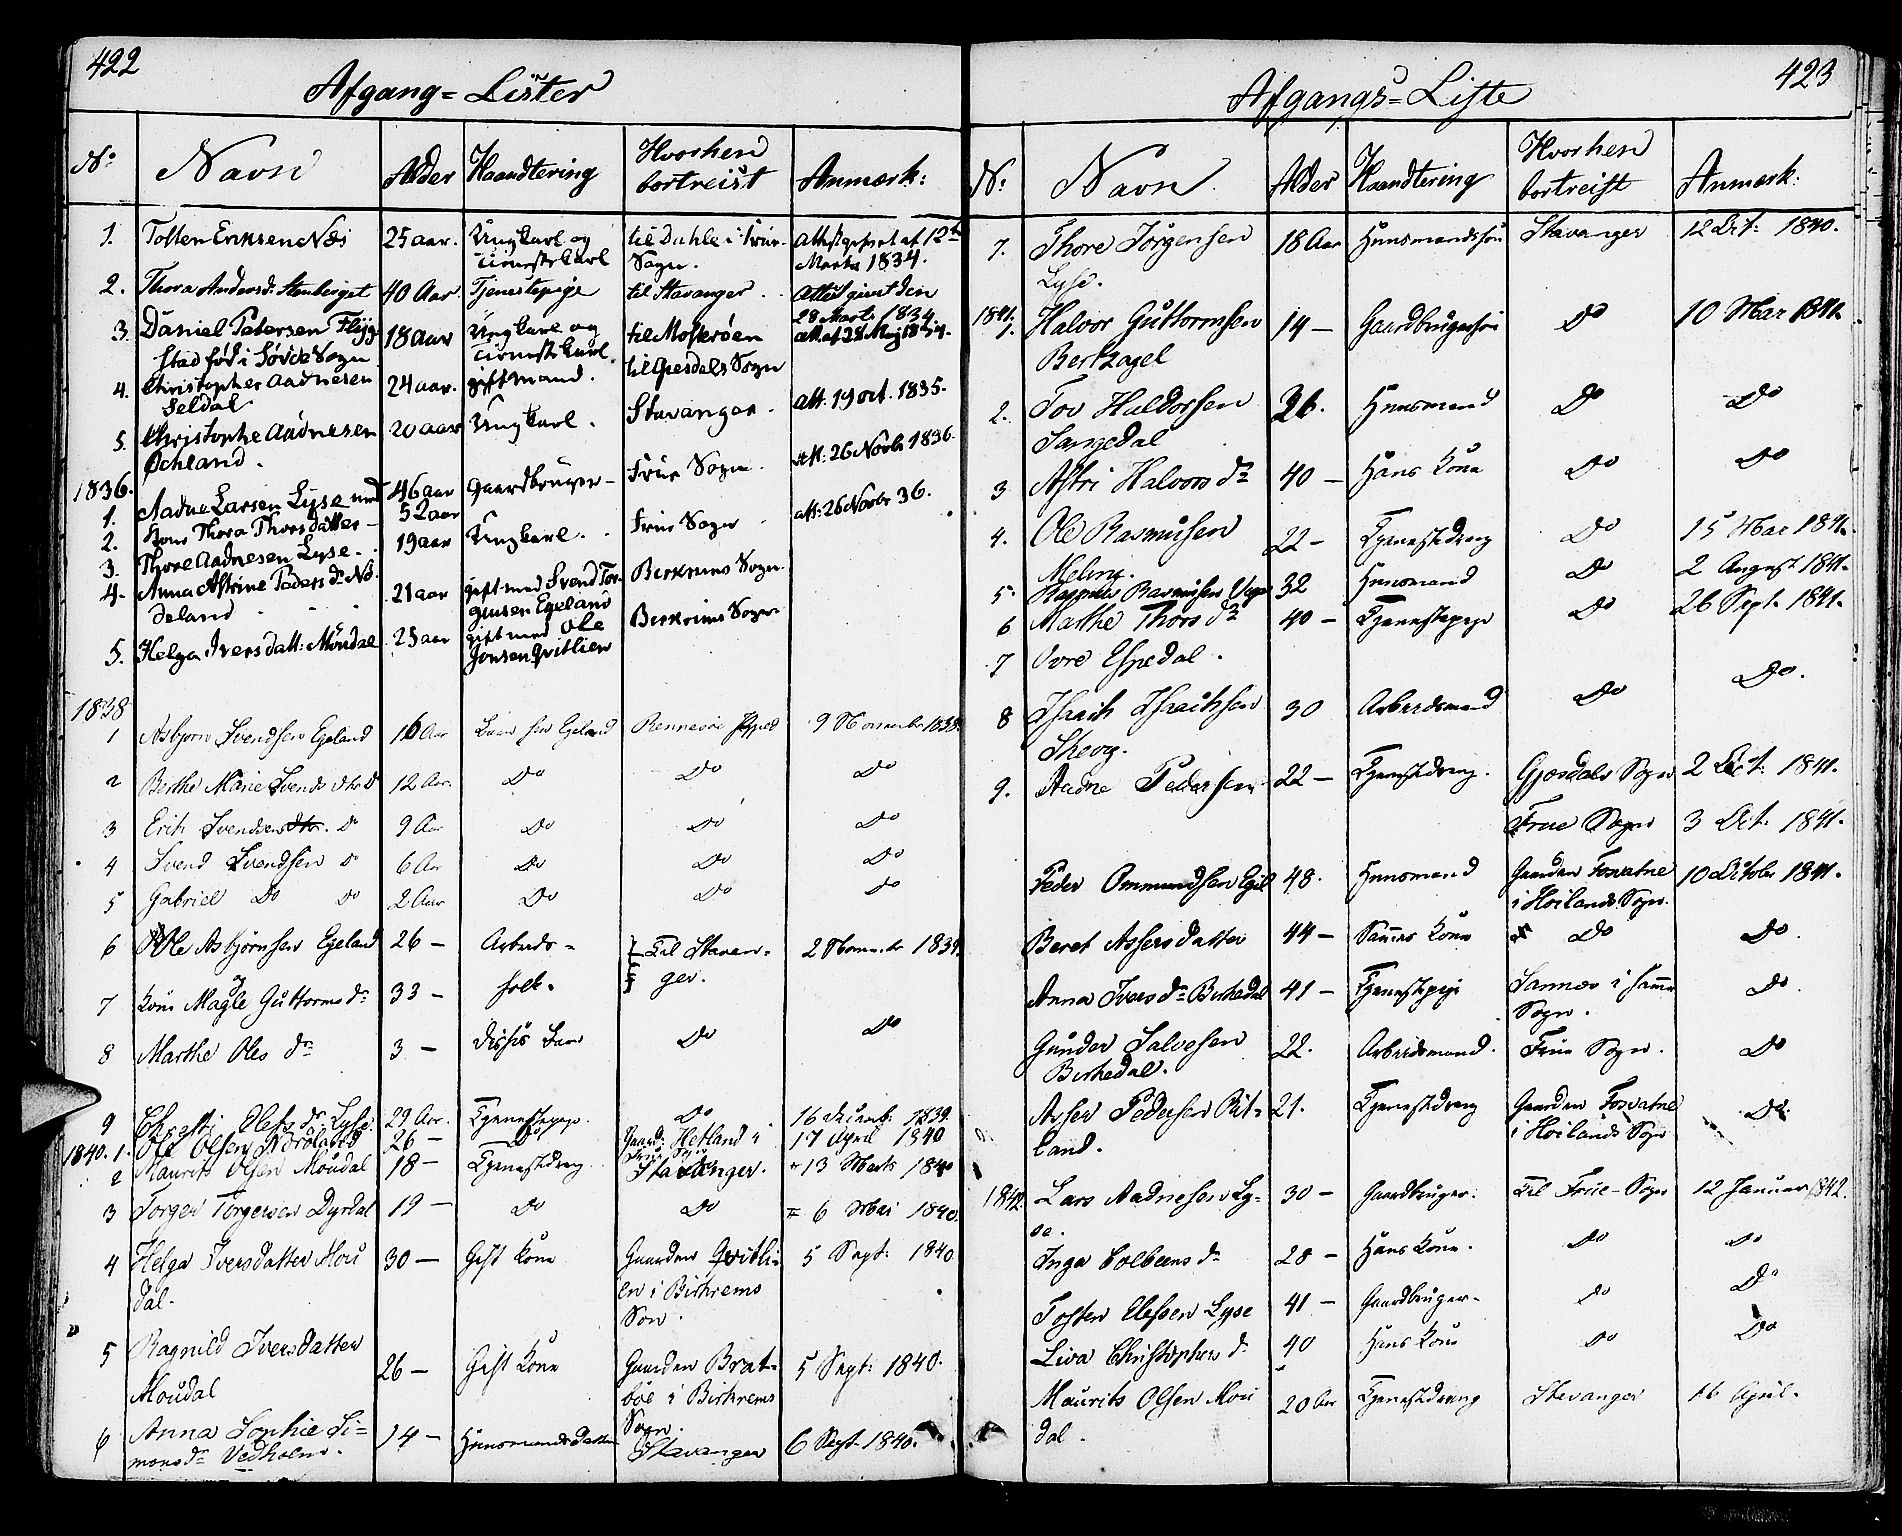 422
Afgang=Lister
No Navn Alder Haandtering Hvorhen bortreist Anmærk:
1. Tosten Eriksen Næs 25 aar. Ungkarl og til Dahle i Frue- Attest gefvet af 12te
Tienestekarl Sogn. Marts 1834.
2. Thora Anders d. Stenberget 40 Aar. Tjenestepige til Stavanger. Attest givet den
28 Marts 1834
3. Daniel Petersen Flÿg- 18 aar Ungkarl og til Mosterøen att. af 28 Maj 1834.
stad fød i Søvde Sogn Tienestekarl.
4. Christopher Aadnesen 24 aar. gift mand. til Giesdals Sogn att. 19 oct. 1835.
Seldal
5. Christophe Aadnesen 20 aar Ungkarl. Stavanger. att: 26 Novbr 1836.
Øchland.
1836.
1. Aadne Larsen Lyse med 46 aar Gaardbruger- Frue Sogn. att: 26 Novbr 36.
2. Kone Thora Thorsdatter - 52 aar
3. Thore Aadnesen Lyse. 19 aar Ungkarl. Frue Sogn
4. Anna Astrine Peders d. Nö- 21 aar gift med Svend Tor- Berkrims Sogn.
deland gensen Egeland
5. Helga Ivers datt: Möudal 25 aar gift med Ole Berkrims Sogn
Jonsen Qvitlien
1838
1 Asbjørn Svendsen Egeland 16 Aar Egeland Rennesøe 9 November 1838.
2 Berthe Marie Svends dtr do 12 Aar. Do Do Do
3 Erik Svendsen do 9 Aar Do Do Do
4 Svend Svendsen do 6 Aar Do Do Do
5 Gabriel Do do 2 Aar Do Do Do
6 Ole Asbjørnsen Egeland 26 - Arbeids- Til Stavan- 2 November 1839.
og
7 Kone Magle Guttorms dr 33 - folk. ger.
8 Marthe Oles dr 3 - Disses Barn Do Do
9 Christi Oles dr Lyse. 29 Aar. Tjenestepige Do 16 Decemb. 1839.
1840. 1. Ole Olsen Nordland 26 - Do Gaard: Hetland i 17 April 1840
Frue Sogn
2 Maurits Olsen Moudal 18 - Tjenestedreng Stavanger. 13 Marts 1840
3 Torger Torgersen Dyrdal 19 - Do Do 6 Mai 1840.
4 Helga Iversdatter Mou 30 - Gift Kone Gaarden Qvitli- 5 Sept: 1840
dal. en i Birkrems
Son.
5 Ragnild Iversdatter 26 - Gift Kone Gaarden Brat- 5 Sept: 1840.
Moudal bøe i Birkrems
Sogn.
6 Anna Sophie Si= 14 - Huusmands datter Stavanger 6 Sept. 1840.
mons dr Vedholm.
423
Afgangs=Liste
N: Navn Alder Haandtering Hvorhen bortreist Anmærk:
7. Thore Jörgensen 18 Aar Huusmandssøn Stavanger 12 Oct: 1840.
Lyse.
1841.
1. Halvor Guttormsen 14 - Gaardbrugersøn Do 10 Mar 1841.
Berkagel
2. Tov Haldorsen 36. Huusmand Do Do
Sangedal
3 Astri Halvors dr 40 - Hans Kone Do Do
4. Ole Rasmusen 22 - Tjenestedreng Do 15 Mar 1841.
Meling.
5 Rasmus Rasmusen 32 Huusmand Do 2 August 1841.
6 Marthe Thors dr 40 - Tjenestepige Do 26 Sept. 1841.
7 Ovre Espedal.
8 Isach Isachsen 30 Arbeidsmand Do Do.
Skeog.
9. Aadne Pedersen 22 - Tjenestedreng. Gjesdals Sogn 2 Oct: 1841.
Frue Sogn 3 Oct: 1841.
Peder Ommundsen Egel 48. Huusmand Gaarden Fosvatne 10 October 1841.
i Hoilands Sogn.
Beret Assers datter 44 - Sammes Kone Do Do.
Anna Ivers dr Birkedal 41 - Tjenestepige Sannæs i samme Do.
Sogn.
Gunder Salvesen 22. Arbeidsmand. Frue Sogn. Do
Birkedal.
Asser Pedersen Rit- 21. Tjenestedreng Gaarden Fosvatne Do.
land. i Hoilands Sogn
1842. Lars Aadnesen Ly- 30 - Gaardbruger. Til Frue-Sogn 12 Januar 1842.
se.
Inga Colbeens dr 28 - Hans Kone. Do Do
Tosten Elefsen Lyse 41 - Gaardbruger- Do Do
Liva Christophers d. 40 Hans Kone Do Do
Maurits Olsen Mou 20 Aar Tjenestedreng Stavanger 16 April.
dal.